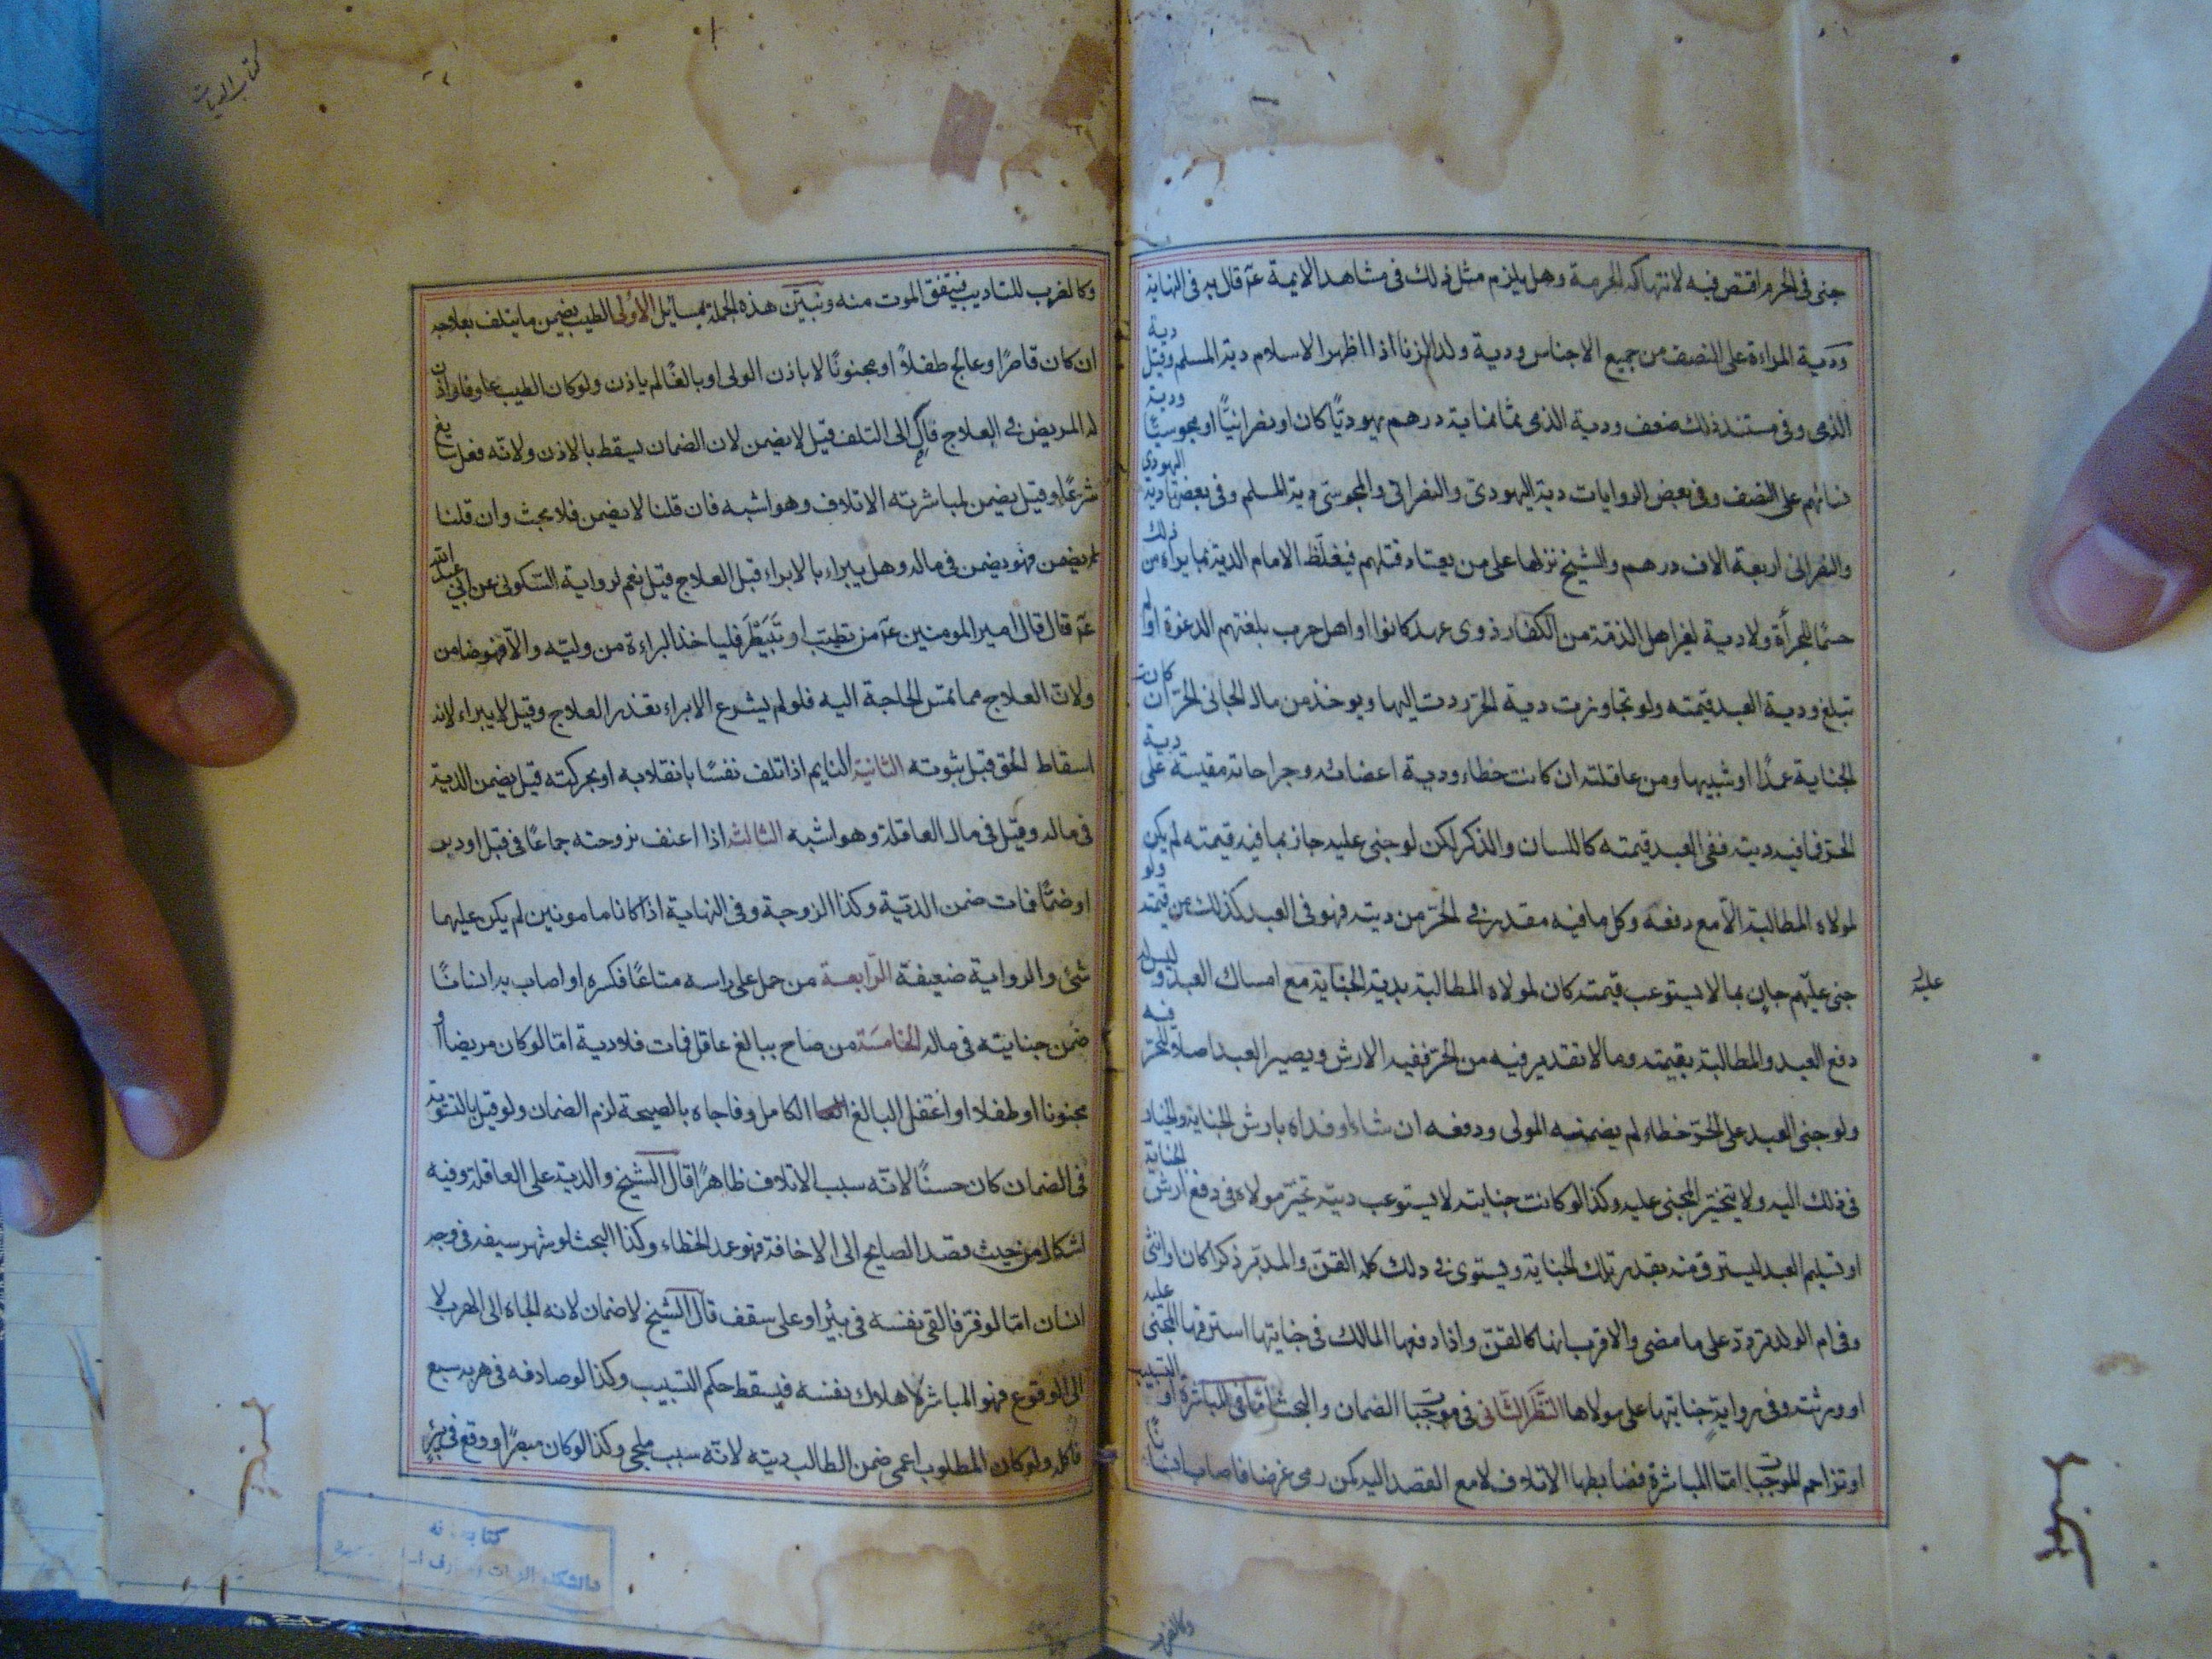 جنى فى الحرم اقتص فيه لانتهاكه الحرمة وهل يلزم مثل ذلك فى مشاهد الايمة عم قال به فى النهاية
ودية المراءة على النصف من جميع الاجناس ودية ولد الزنا اذا اظهر الاسلام دية المسلم وقيل دية
الذمى وفى مستند ذلك ضعف ودية الذمى ثمانماية درهم يهوديًا كان او نصرانيًا او مجوسيًا ودية
نسائهم على النصف وفى بعض الروايات دية اليهودى والنصرانى والمجوسى دية المسلم وفى بعضها دية اليهودى
والنصرانى اربعة الاف درهم والشيخ نزلها على من يعتاد قتلهم فيغلّظ الامام الدية بما يراه من ذلك
حسمًا للجرأة ولا دية لغير اهل الذمة من الكفار ذوى عهد كانوا او اهل حرب بلغتهم الدعوة او لم
تبلغ ودية العبد قيمته ولو تجاوزت دية الحرّ ردت اليها ويوخذ من مال الجانى الحرّ ان كانت
الجناية عمدًا او شبيها ومن عاقلته ان كانت خطاء ودية اعضائه وجراحاته مقيسة على دية
الحرّ فما فيه ديته ففى العبد قيمته كاللسان والذكر لكن لو جنى عليه جاز بما فيه قيمته لم يكن
لمولاه المطالبة الاّ مع دفعه وكل ما فيه مقدر فى الحرّ من ديته فهو فى العبد كذلك من قيمته ولو
جنى عليهم جانٍ بما لا يستوعب قيمته كان لمولاه المطالبة بدية الجناية مع امساك العبد وليس له
دفع العبد والمطالبة بقيمته وما لا تقدير فيه من الحرّ ففيه الارش ويصير العبد اصلا للحرّ فيه
ولو جنى العبد على الحرّ خطاء لم يضمنه المولى ودفعه ان شاء او فداه بارش الجناية والخيار
فى ذلك اليه ولا يتخيّر المجنى عليه وكذا لو كانت جنايته لا يستوعب ديته تخيّر مولاه فى دفع ارش الجناية
او تسليم العبد ليسترق منه بقدر تلك الجناية ويستوى فى ذلك كله القنّ والمدبّر ذكرا كان او انثى
وفى ام الولد تردّد على ما مضى والاقرب انها كالقنّ واذا دفعها المالك فى جنايتها استرقها المجنى عليه
او ورثته وفى رواية جنايتها على مولاها النَّظَر الثّانى فى موجبات الضمان والبحث امّا فى المباشرة او التسبيب
او تزاحم الموجبات امّا المباشرة فضابطها الاتلاف لا مع القصد اليه كمن رمى غرضا فاصاب انسانًا
عليه
وكالضرب
وكالضرب للتاديب فيتفق الموت منه ونبيّن هذه الجملة بمسائل الأولى الطبيب يضمن ما يتلف بعلاجه
ان كان قاصرًا او عالج طفلاً او مجنونًا لا باذن الولى او بالغًا لم ياذن ولو كان الطبيب عارفا واذن
له المريض فى العلاج فآل الى التلف قيل لا يضمن لان الضمان يسقط بالاذن ولانّه فعل سايغ
شرعًا وقيل يضمن لمباشرته الاتلاف وهو اشبه فان قلنا لا يضمن فلا بحث وان قلنا
يضمن فهو يضمن فى ماله وهل يبراء بالابراء قبل العلاج قيل نعم لرواية السّكونى عن ابى عبد الله
عم قال قال امير المومنين عم من تطبّب او تَبَيْطَر فلياخذ البراءة من وليّه والاّ فهو ضامن
ولانّ العلاج مما تمسّ الحاجة اليه فلو لم يشرع الابراء تعذر العلاج وقيل لا يبراء لانه
اسقاط الحق قبل ثبوته الثانية النايم اذا اتلف نفسًا بانقلابه او بحركته قيل يضمن الدية
فى ماله وقيل فى مال العاقلة وهو اشبه الثالثة اذا اعنف بزوجته جماعًا فى قبل او دبر
او ضمًّا فمات ضمن الديّة وكذا الزوجة وفى النهاية اذا كانا مامونين لم يكن عليهما
شئ والرواية ضعيفة الرّابعة من حمل على راسه متاعًا فكسره او اصاب به انسانًا
ضمن جنايته فى ماله الخامسَة من صاح ببالغ عاقل فمات فلا دية امّا لو كان مريضا او
مجنونا او طفلا او اغتفل البالغ الكامل وفاجاه بالصيحة لزم الضمان ولو قيل بالتسوية
فى الضمان كان حسنًا لانّه سبب الاتلاف ظاهرًا قال الشيخ والدية على العاقلة وفيه
اشكال من حيث قصد الصايح الى الاخافة فهو عمد الخطاء وكذا البحث لو شهر سيفه فى وجه
انسان امّا لو فرّ فالقى نفسه فى بئر او على سقف قال الشيخ لا ضمان لانه الجاه الى الهرب لا
الى الوقوع فهو المباشر لاهلاك نفسه فيسقط حكم التسبيب وكذا لو صادفه فى هربه سبع
فاكله ولو كان المطلوب اعمى ضمن الطالب ديته لانّه سبب ملجى وكذا لو كان مبصرًا ووقع فى بئرٍ
كتاب الديات
كتابخانه